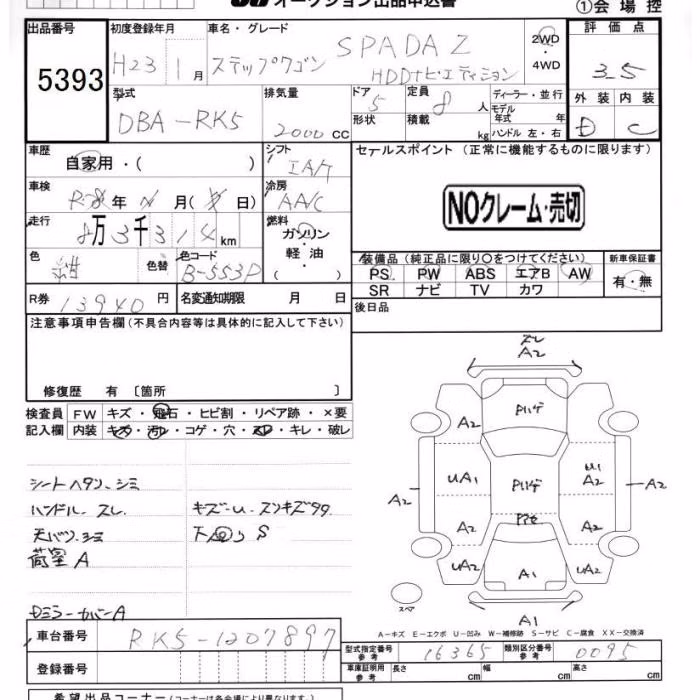 オークション出品申込書
①会場控
出品番号 初度登録年月 車名・グレード 評価点
5393 H23 1月 ステップワゴン SPADA Z HDDナビエディション 2WD 4WD 3.5
型式 排気量 ドア 定員 ディーラー・並行 外装 内装
DBA-RK5 2000cc 5 8人 モデル年式 年 D C
形状 積載 kg ハンドル 左・右
車歴 シフト セールスポイント (正常に機能するものに限ります)
自家用・( ) IA/T
車検 冷房
年 月 ( 日) AA/C
NOクレーム・売切
走行 燃料
8万3千314km ガソリン・軽油
色 色替 色コード ( )
B-553P
装備品(純正品に限り○をつけてください) 新車保証書
PS PW ABS エアB AW 有・無
SR ナビ TV カワ
R券 13940円 名変通知期限 月 日
後日品
注意事項申告欄(不具合内容等は具体的に記入して下さい)
修復歴 有 〔箇所 〕
検査員記入欄 FW キズ・飛石・ヒビ割・リペア跡・×要
内装 キズ・汚レ・コゲ・穴・スレ・キレ・破レ
シートヘタリ、シミ
ハンドル スレ
天バリ シミ
荷室 A
キズ-U-スリキズ99
下回り S
ドミラーカバーA
スレ
A2
A2
A2
UA1
A2
A2
A2
A2
UA2
UA2
A1
A1
スペア
A-キズ E-エクボ U-凹み W-補修跡 S-サビ C-腐食 XX-交換済
車台番号 RK5-1207897
型式指定番号 参考 16365 類別区分番号 参考 0095
登録番号
車庫証明用 参考 長さ cm 幅 cm 高さ cm
希望出品コーナー(コーナーは各会場により異なります。)